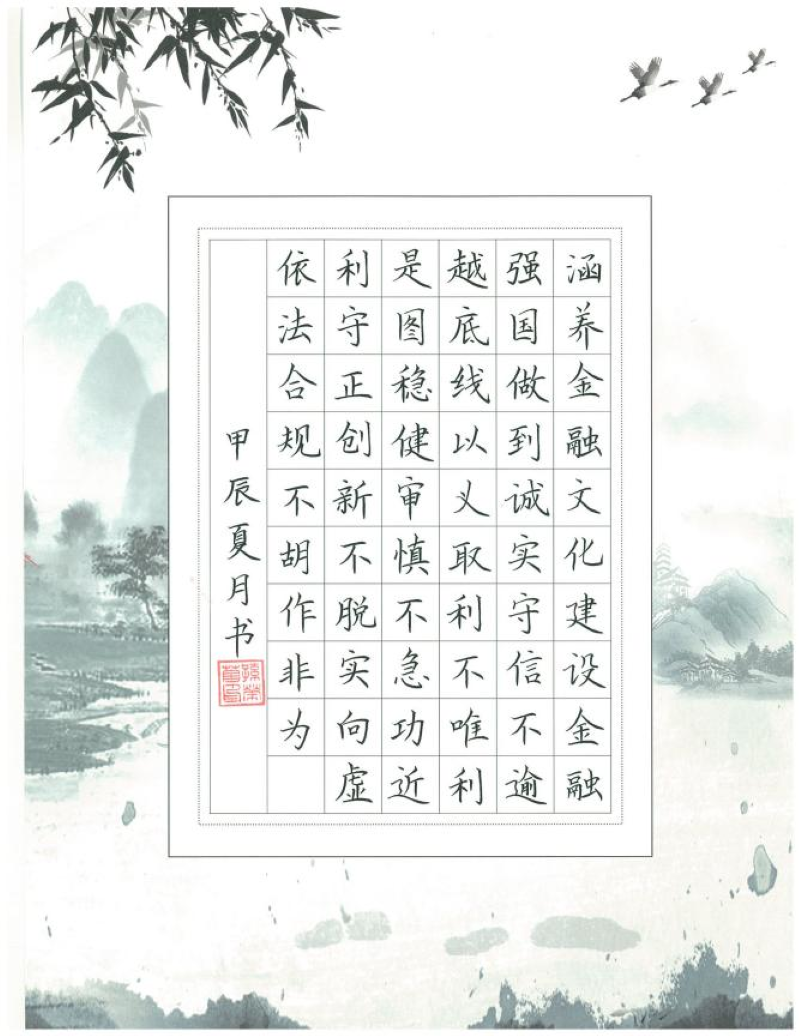 涵养金融文化建设金融
强国做到诚实守信不逾
越底线以义取利不唯利
是图稳健审慎不急功近
利守正创新不脱实向虚
依法合规不胡作非为
甲辰夏月书